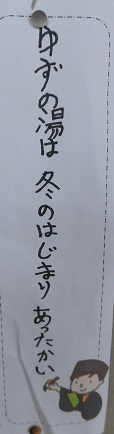 ゆずの湯は 冬のはじまり あったかい